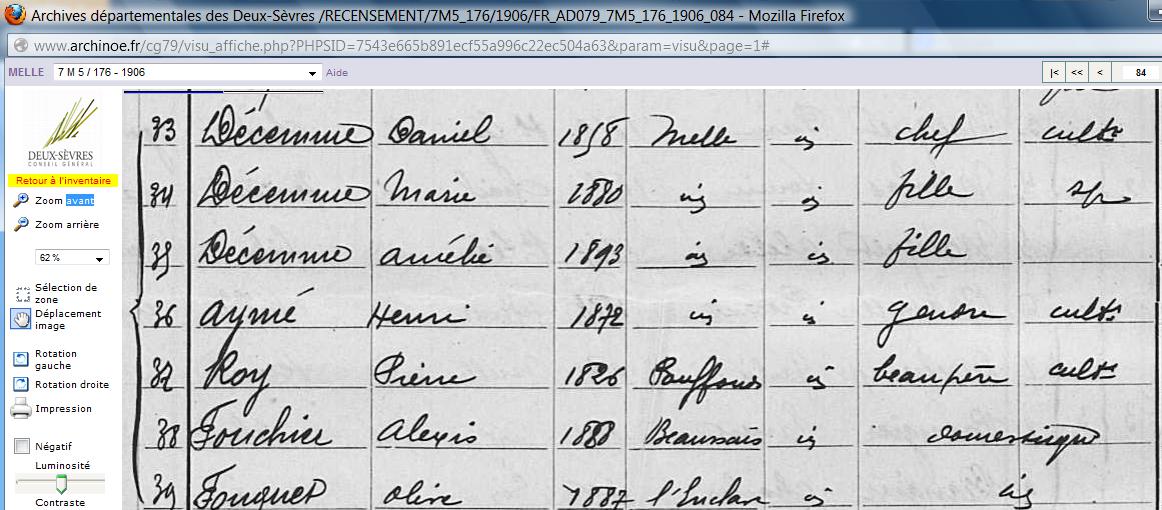 Archives départementales des Deux-Sèvres /RECENSEMENT/7M5_176/1906/FR_AD079_7M5_176_1906_084 - Mozilla Firefox
www.archinoe.fr/cg79/visu_affiche.php?PHPSID=7543e665b891ecf55a996c22ec504a63&param=visu&page=1#
MELLE 7 M 5 / 176 - 1906 Aide |< << < 84
DEUX-SÈVRES
CONSEIL GÉNÉRAL
Retour à l'inventaire
Zoom avant
Zoom arrière
62 %
Sélection de
zone
Déplacement
image
Rotation
gauche
Rotation droite
Impression
Négatif
Luminosité
Contraste
33 Décemme Daniel 1858 Melle id chef cultr
34 Décemme Marie 1880 id id fille sp
35 Décemme Amélie 1893 id id fille
36 Aymé Henri 1872 id id gendre cultr
37 Roy Pierre 1826 id beau père cultr
38 Fouchier Alexis 1888 Beaussais id domestique
39 Fouquet Olive 1887 l'Enclave id id